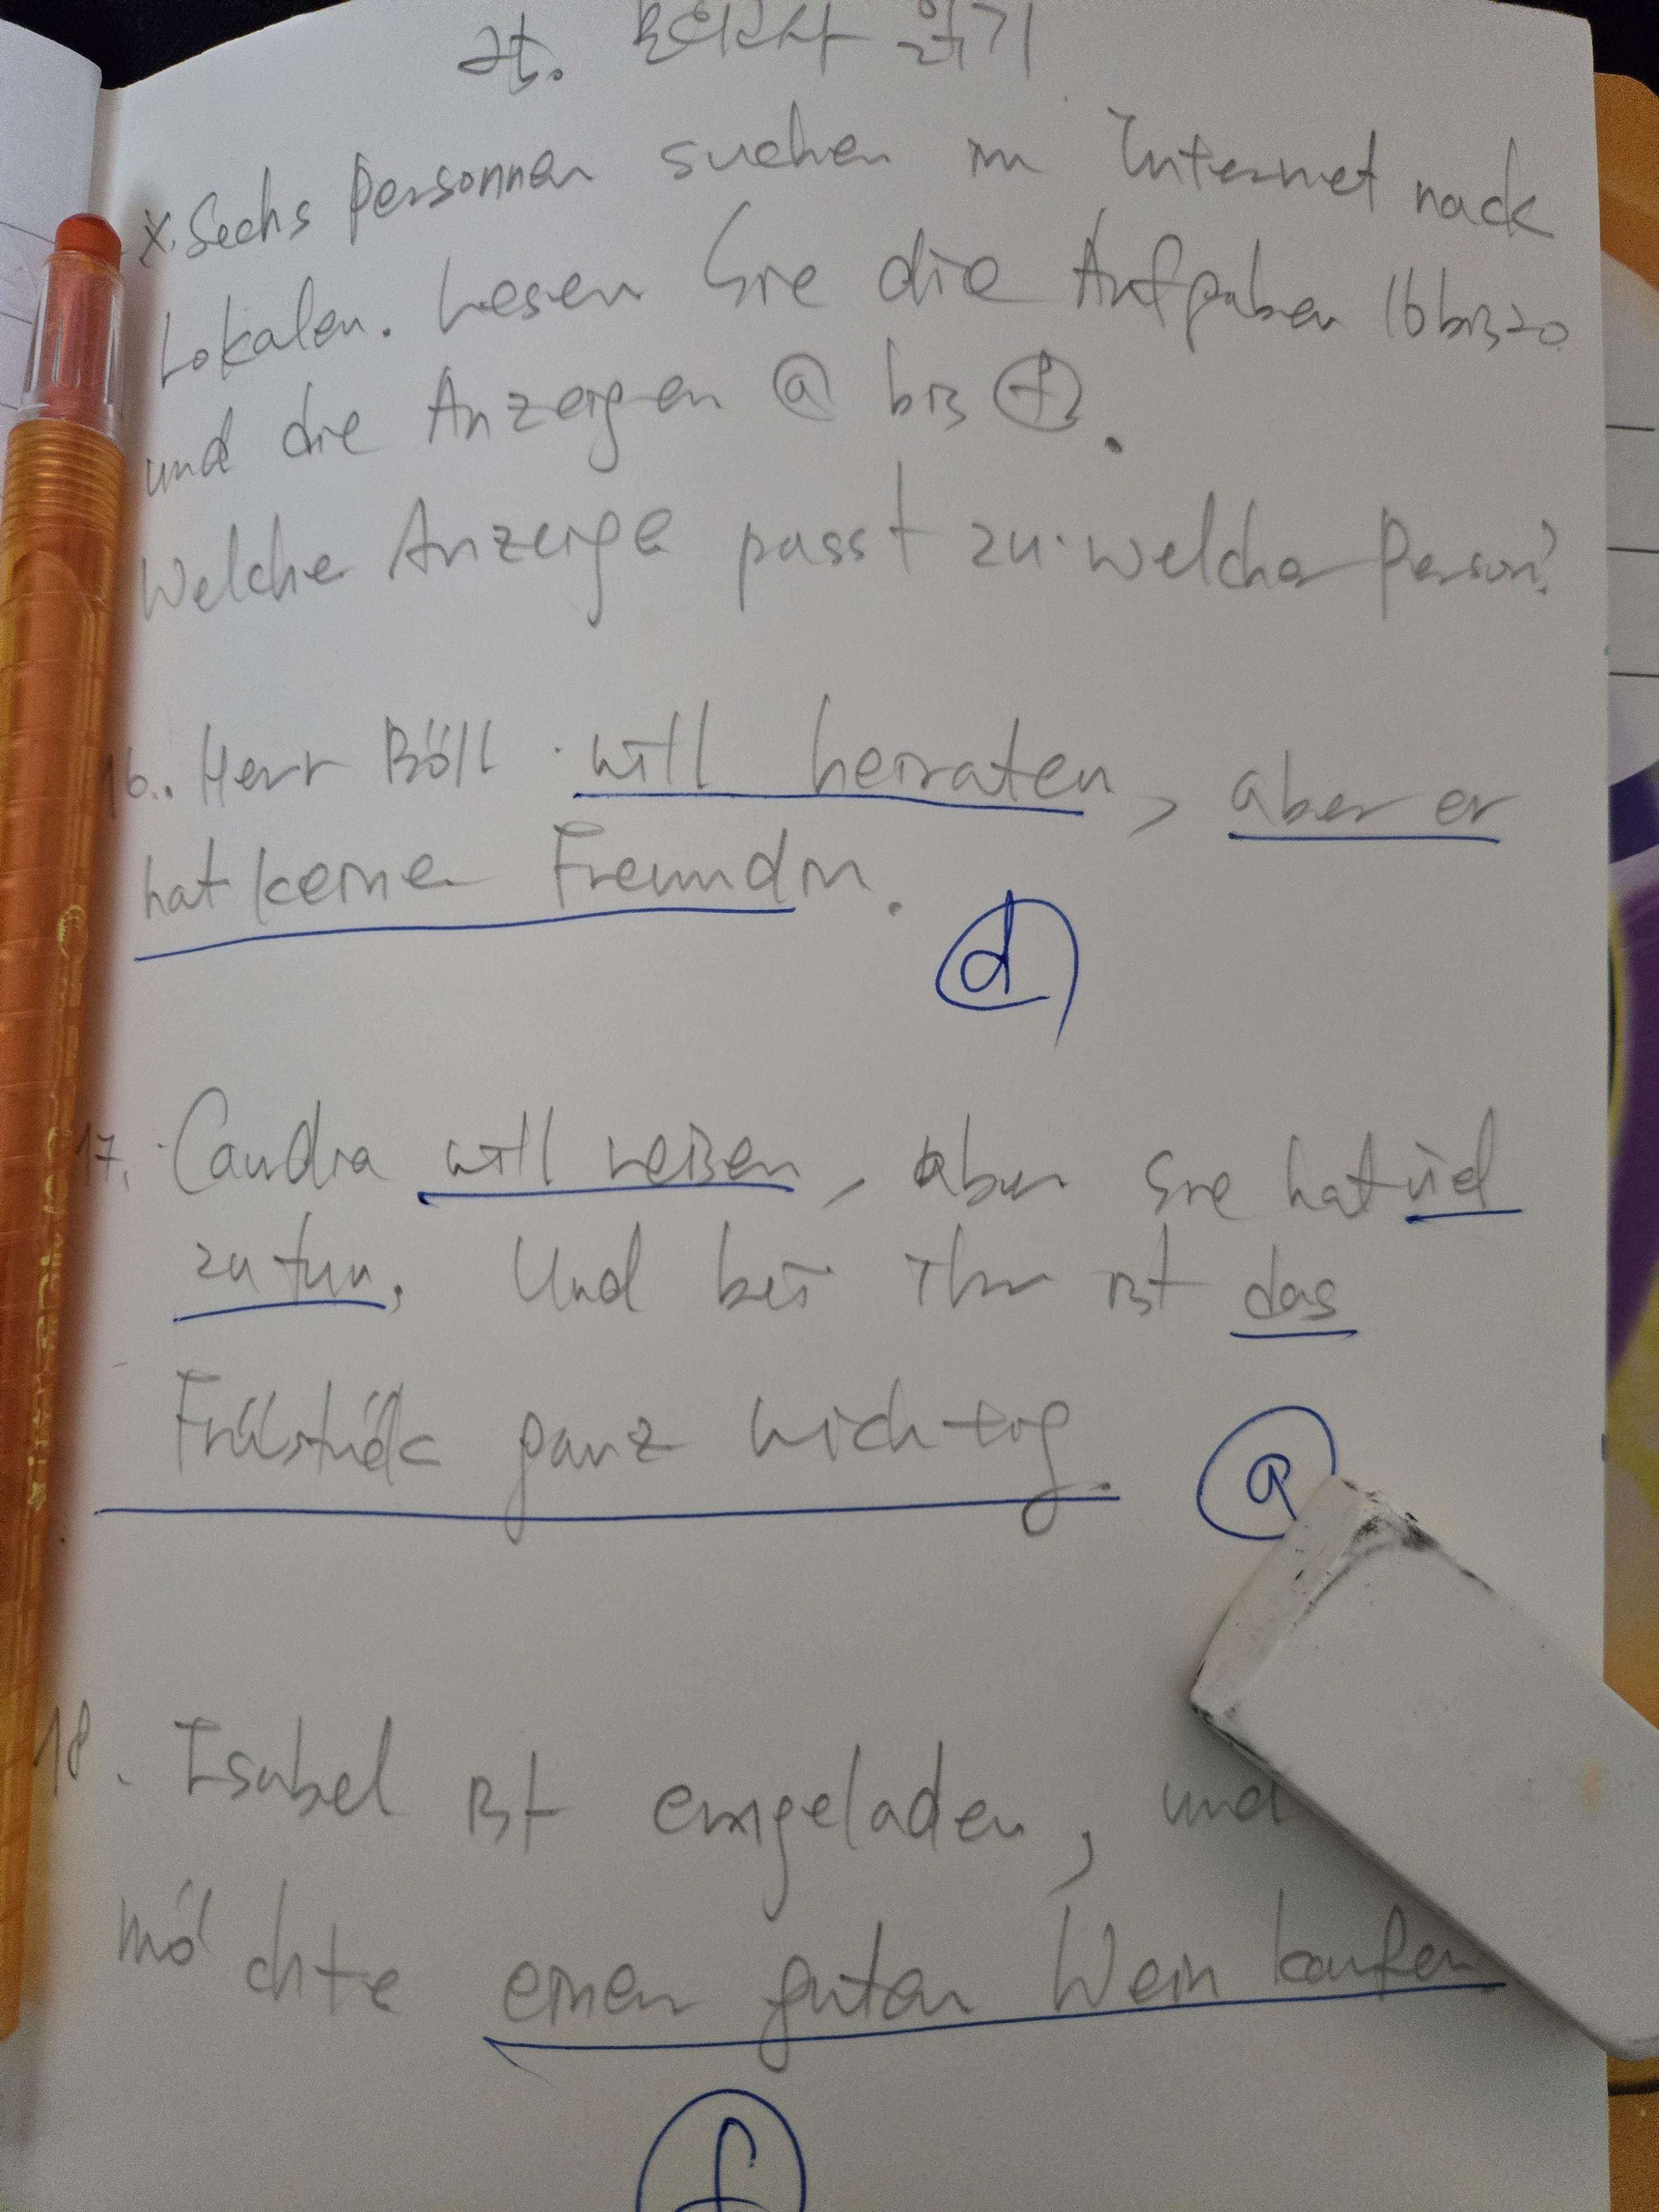 읽기
※. Sechs Personnen suchen im Internet nach
Lokalen. Lesen Sie die Aufgaben 16 bis 20
und die Anzeigen ⓐ bis ⓕ.
Welche Anzeige passt zu welcher Person?
16.. Herr Böll will heiraten, aber er
hat keine Freundin.
ⓓ
17. Caudia will reisen, aber sie hat viel
zu tun. Und bei ihr ist das
Früstück ganz wichtig.
ⓐ
18. Isabel ist eingeladen, und
möchte einen guten Wein kaufen
ⓕ